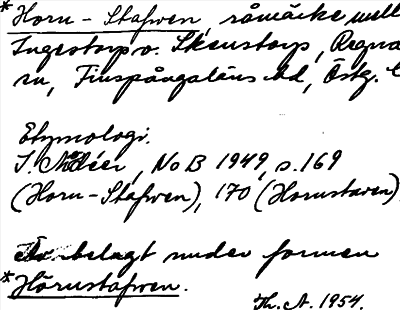 *Horn-Stafwen, råmärke mell
Ingestorp o. Skenstorp, Regna
sn, Finspångaläns hd, Östg. l
Etymologi.
I. Modéer, NoB 1949, s. 169
(Horn-Stafwen), 170 (Hornstaven)
Är belagt under formen
*Hörnstafwen.
Th. A. 1954.